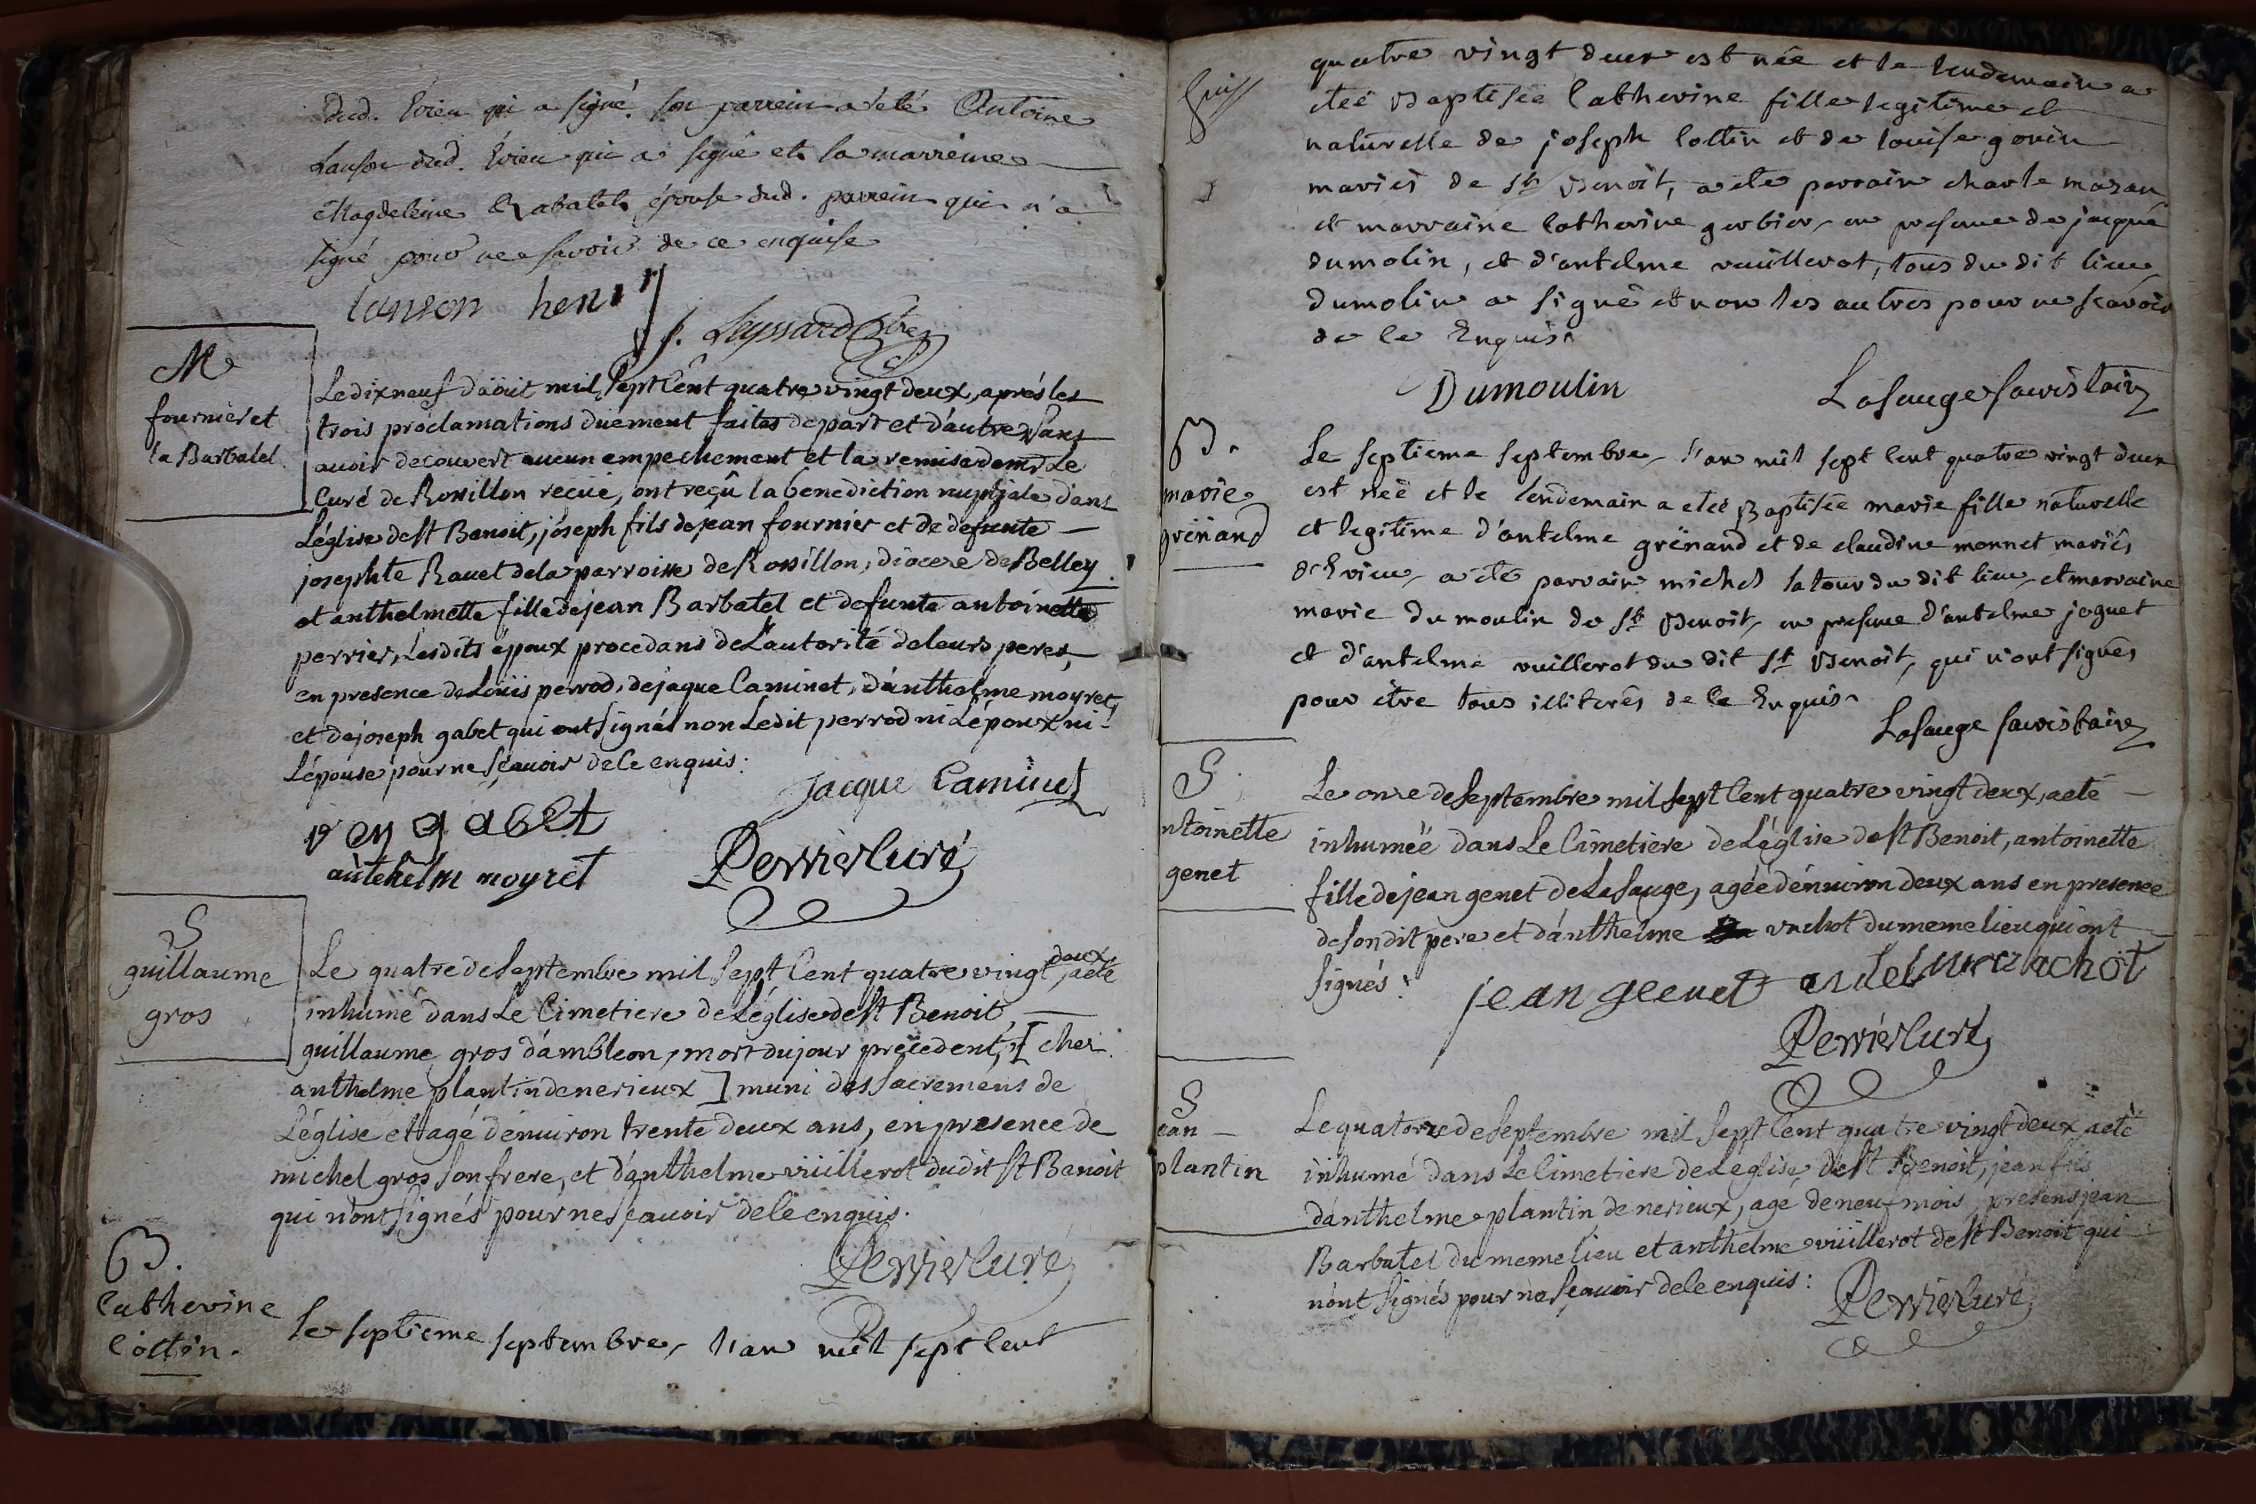 dud. Evieu qui a signé. son parrein a été Antoine
Lanson dud. Evieu qui a signé et la marreine
Magdeleine Rabatet épouse dud. parrein qui n'a
signé pour ne savoir de ce enquise
Lanson henri
f. Leyssard
M
fournier et
la Barbatel
Le dix neuf d'aôut mil sept Cent quatre vingt deux, aprés les
trois proclamations düement faites de part et d'autre sans
avoir decouvert aucun empechement et la remise de mr Le
Curé de Rossillon reçüe, ont reçû la benediction nuptiale dans
L'église de st Benoit, joseph fils de jean fournier et de defunte
josephte Ravet de la parroisse de Rossillon, diocese de Belley
et anthelmette fille de jean Barbatel et defunte antoinette
perrier, Lesdits époux procedans de L'autorité de leurs peres,
en presence de Loüis perrod, de jaque Caminet, d'anthelme moyret,
et de joseph gabet qui ont signés non Ledit perrod ni L'époux ni
L'épouse pour ne sçavoir de ce enquis:
jacque Caminet
gabet
antehelm moyret
Perrier Curé
S
guillaume
gros
Le quatre de septembre mil sept Cent quatre vingt deux, a eté
inhumé dans Le Cimetiere de L'église de st Benoit,
guillaume gros d'ambleon, mort du jour précedent, [ chez
anthelme plantin de nerieux ] muni des sacremens de
L'église et agé d'environ trente deux ans, en presence de
michel gros son frere, et d'anthelme vüillerot dudit st Benoit
qui n'ont signés pour ne sçavoir de ce enquis.
Perrier Curé
B.
Catherine
Cottin.
Le septieme septembre, l'an mil sept Cent
quatre vingt deux est née et le lendemain a
eteé Baptisée Catherine fille legitime et
naturelle de joseph Cottin et de louise gonin
mariés de st Benoit, a ete parrain charle mazan
et marraine Catherine gerbier, en presence de jaque
dumolin, et d'antelme vuillerot, tous du dit lieu,
dumolin a signé et non les autres pour ne scavoir
de Ce Enquis.
Dumoulin
Lasauge sacristain
B.
marie
grenand
Le septieme septembre, l'an mil sept Cent quatre vingt deux
est neé et le lendemain a eteé Baptisée marie fille naturelle
et legitime d'antelme grenand et de claudine monnet mariés
d'Evieu, a eté parrain michel latour du dit lieu, et marraine
marie du moulin de st Benoit, en presence d'antelme joguet
et d'antelme vuillerot du dit st Benoit, qui n'ont signés
pour être tous illiterés de Ce Enquis.
Lasauge sacristain
S.
ntoinette
genet
Le onze de septembre mil sept Cent quatre vingt deux, a eté
inhumeë dans Le Cimetiere de L'église de st Benoit, antoinette
fille de jean genet de La sauge, agée d'environ deux ans en presence
de son dit pere et d'anthelme vachot du meme lieu qui ont
signés:
jean geenet
Perrier Curé
S
ean
plantin
Le quatorze de septembre mil sept Cent quatre vingt deux a eté
inhumé dans Le Cimetiere de L'église de st Benoit, jean fils
d'anthelme plantin de nerieux, agé de neuf mois, presens jean
Barbatel du meme lieu et anthelme vüillerot de st Benoit qui
n'ont signés pour ne sçavoir de ce enquis:
Perrier Curé